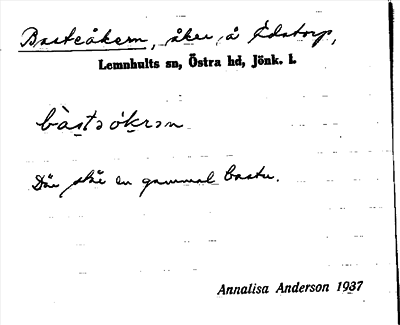 Basteåkern, åker, å Edstorp,
Lemnhults sn, Östra hd, Jönk. l.
bàstsòkrən
Där står en gammal bastu.
Annalisa Anderson 1937